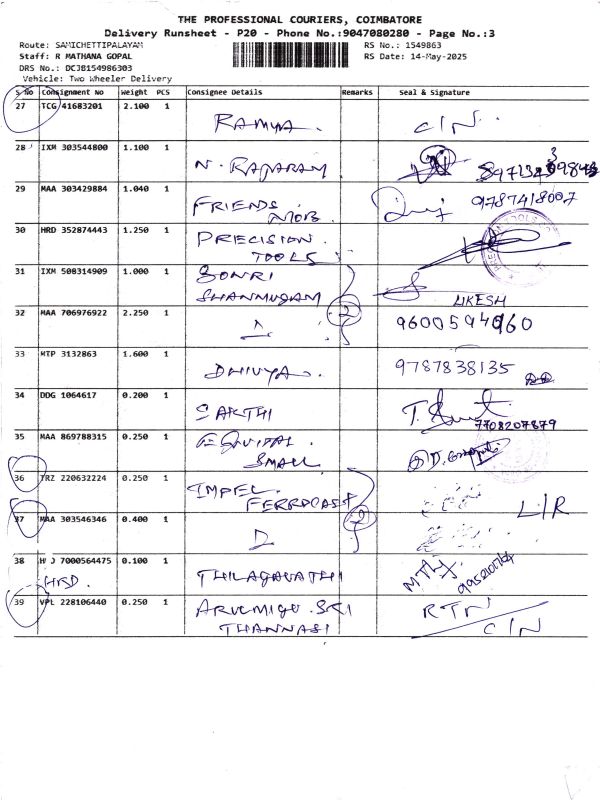 THE PROFESSIONAL COURIERS, COIMBATORE
Delivery Runsheet - P20 - Phone No.:9047080280 - Page No.:3
Route: SAMICHETTIPALAYAM
RS No.: 1549863
Staff: R MATHANA GOPAL
RS Date: 14-May-2025
DRS No.: DCJB154986303
Vehicle: Two Wheeler Delivery
S No Consignment No Weight PCS Consignee Details Remarks Seal & Signature
27 TCG 41683201 2.100 1
RAMYA. C/N.
28 IXM 303544800 1.100 1
N. RAJARAM
29 MAA 303429884 1.040 1
9787418007
FRIENDS
MOB.
30 HRD 352874443 1.250 1
PRECISION.
TOOLS
31 IXM 508314909 1.000 1
SHANMUGAM
LIKESH
32 MAA 706976922 2.250 1
2
9600594960
33 MTP 3132863 1.600 1
9787838135
DHIVYA.
34 DDG 1064617 0.200 1
SAKTHI
7708207879
35 MAA 869788315 0.250 1
SMALL
36 TRZ 220632224 0.250 1
IMPEL.
FERROCAST
L/R
37 MAA 303546346 0.400 1
2
38 H J 7000564475 0.100 1
HRD.
THILAGAVATHI
39 VPL 228106440 0.250 1
ARULMIGU. SRI
THANNASI
RTN
C/N